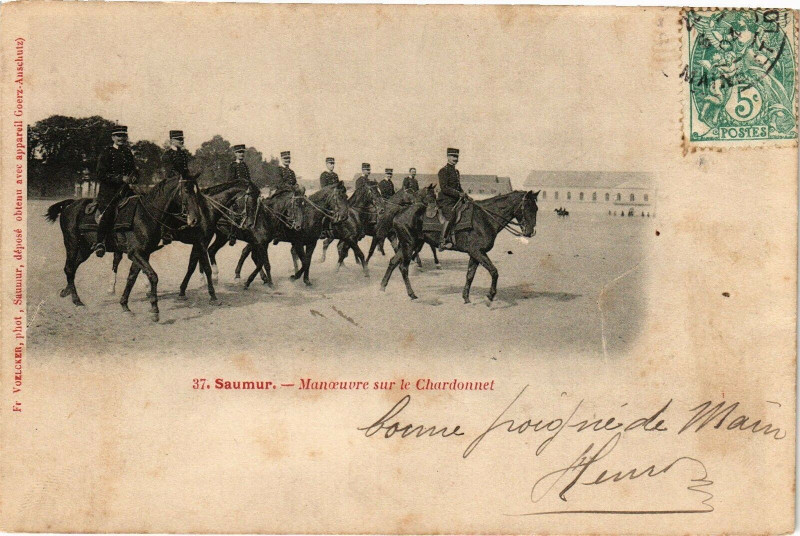 5c
POSTES
Fr VOELCKER, phot, Saumur, déposé obtenu avec appareil Goerz-Anschutz)
37. Saumur. — Manœuvre sur le Chardonnet
bonne poignée de Main
Henri